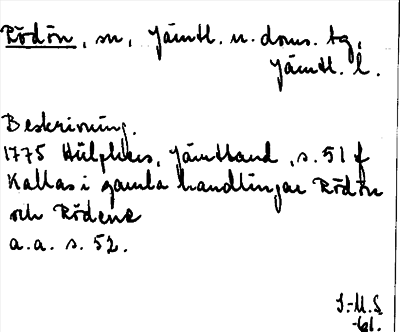 Rödön, sn, Jämtl. n. doms. tg,
Jämtl. l.
Beskrivning.
1775 Hülphers, Jämtland, s. 51 f
Kallas i gamla handlingar Rödön
och Rödene
a.a. s. 52.
I.-M.S
-61.